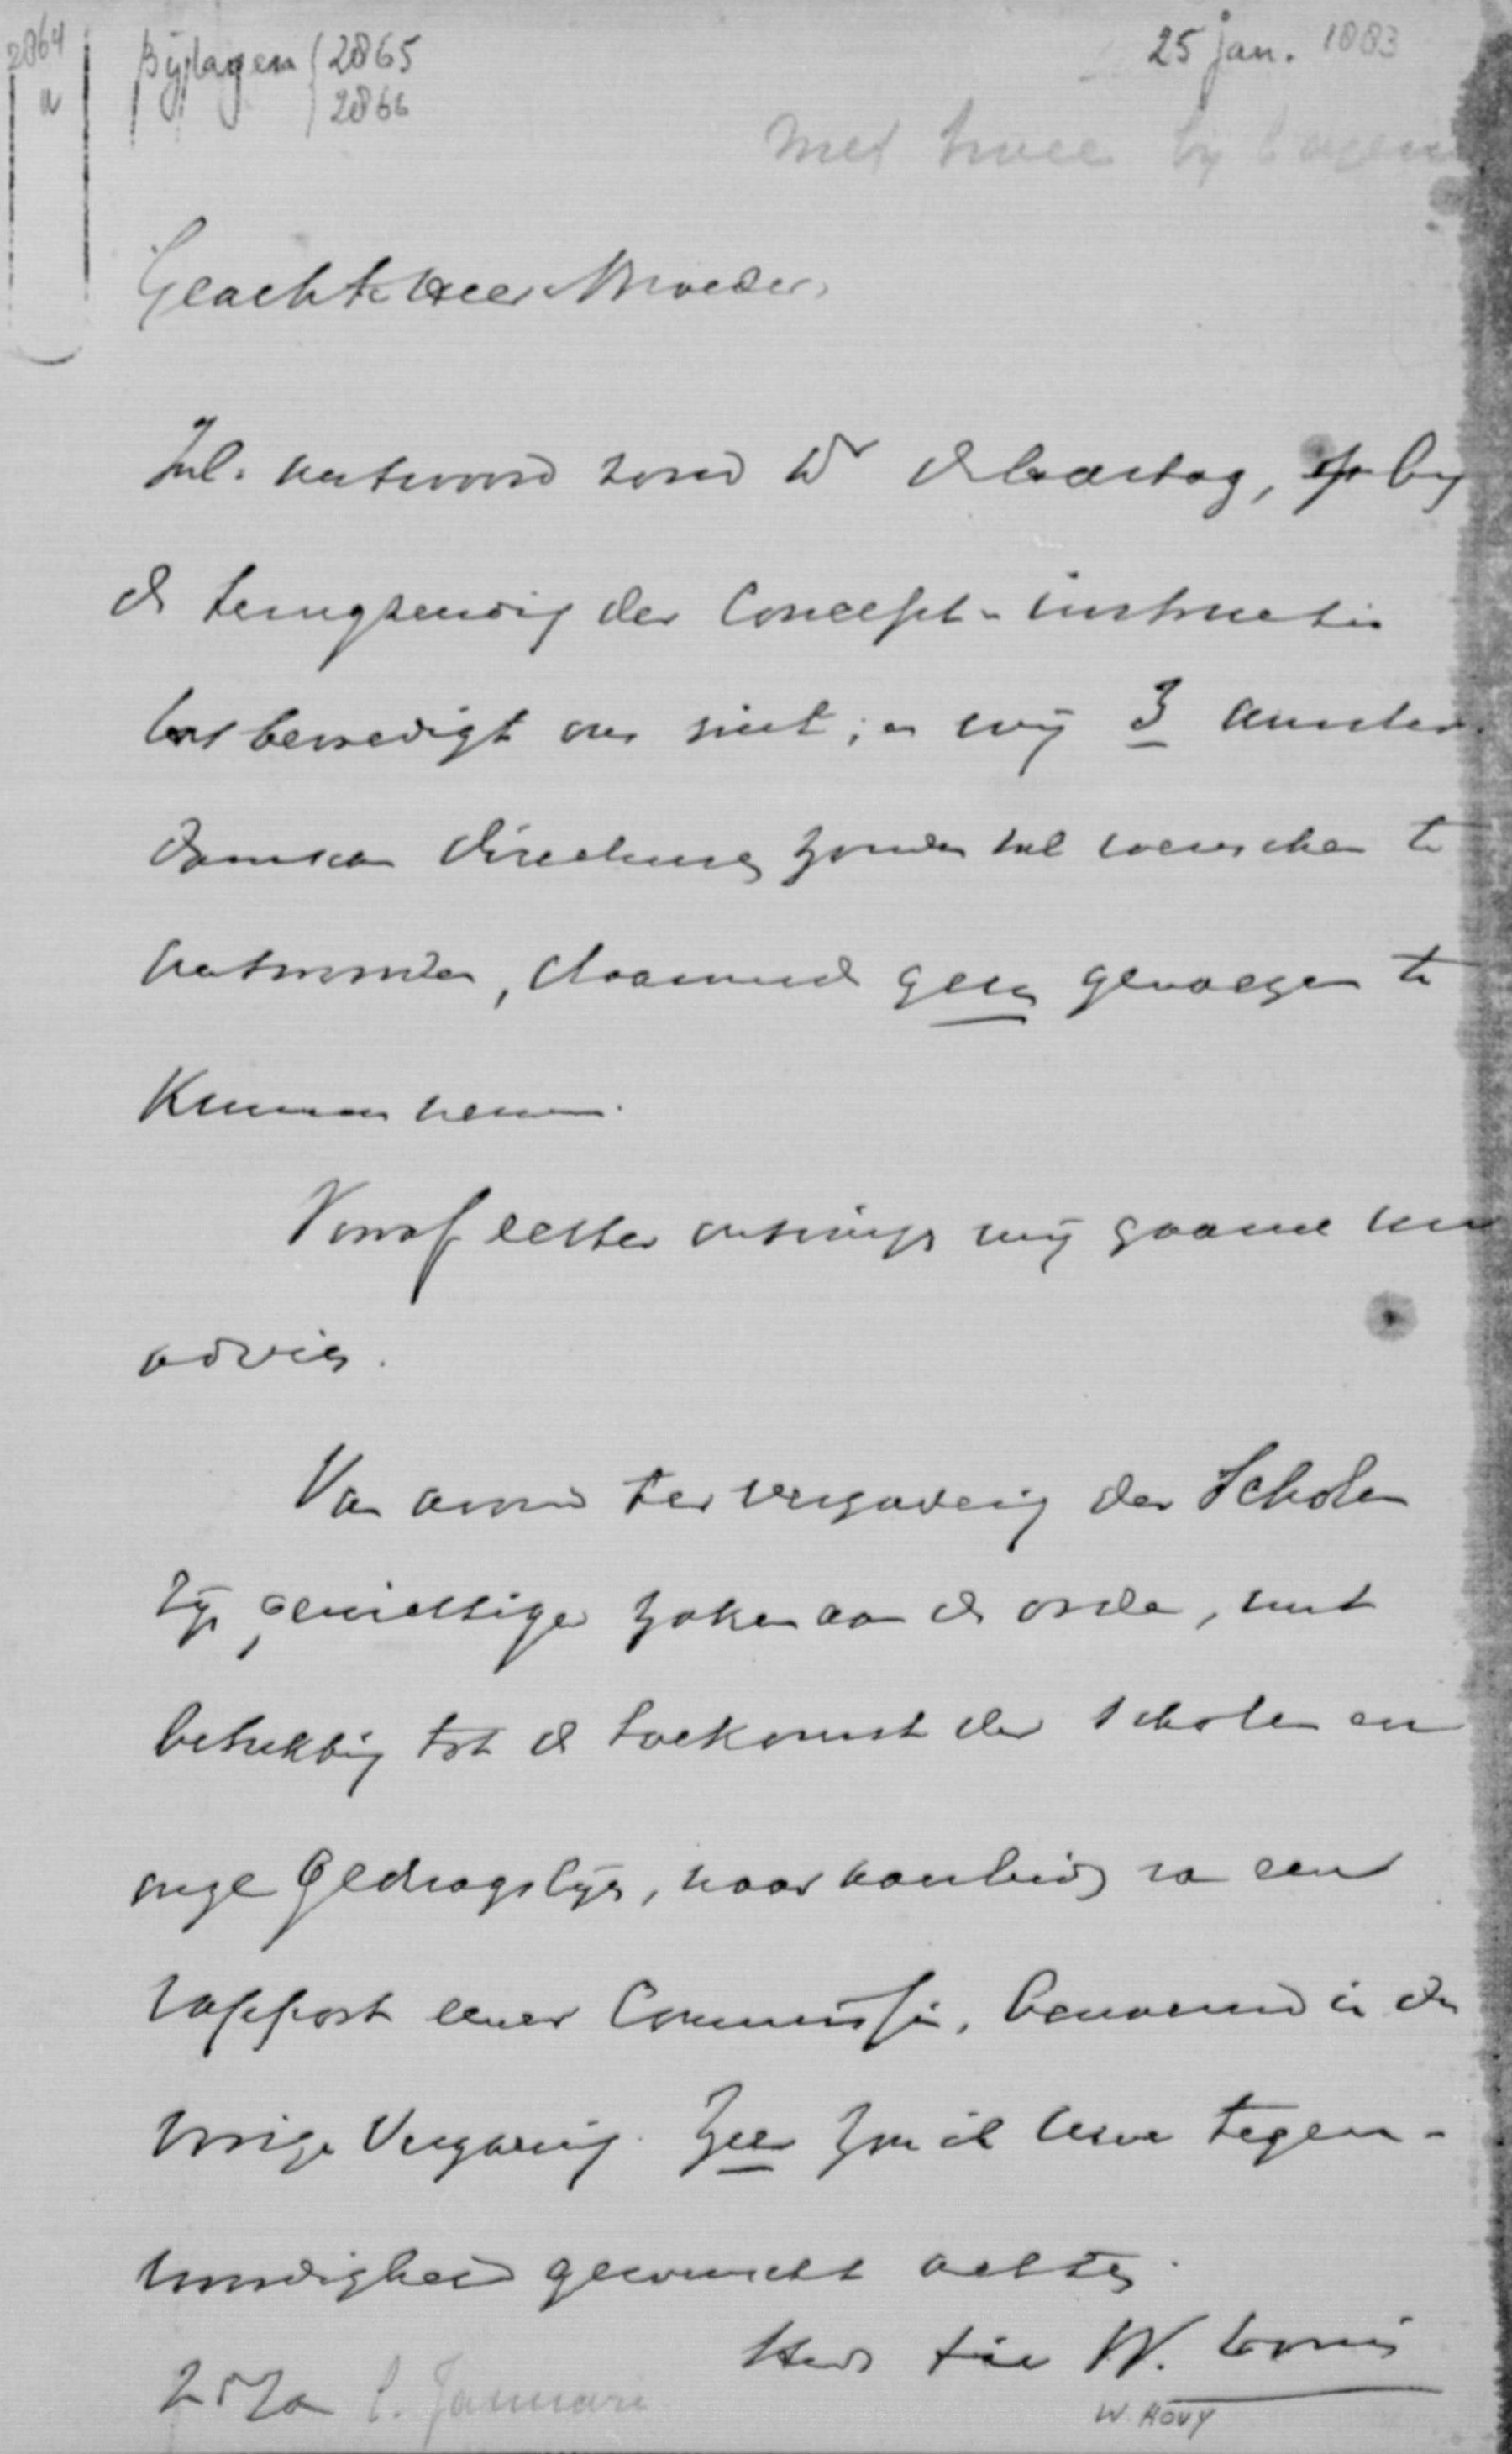 2864
a
Bijlagen 2865
2866
25 jan. 1883
Met twee bylagen
Geachte Heer & Broeder,
Inl. antwoord van Dr de Hartog, op by
de terugzending der Concept-instructie
bevredigt ons niet; en wij 3 Amster-
damsche Directeuren zouden wel wenschen te
antwoorden, daarmede geen genoegen te
Kunnen nemen.
Vooraf echter ontvingen wij gaarne uw
advies.
Van avond ter vergadering der Scholen
zijn gewichtige zaken aan de orde, met
betrekking tot de toekomst der Scholen en
onze Gedragslijn, naar aanleiding van een
rapport eener Commissie, benoemd in de
vorige Vergadering. Zeer zou ik Uwe tegen-
woordigheid gewenscht achten.
W. Hovy
25 Ja
Januari
W. HOVY